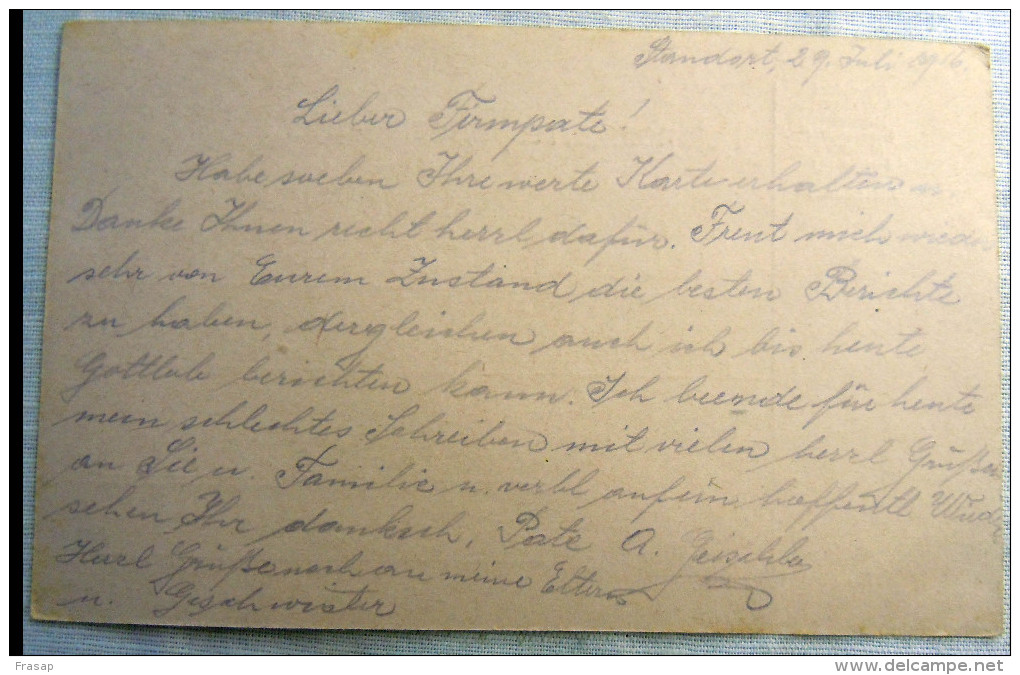 Standort, 29. Juli 1916.
Lieber Firmpate!
Habe soeben Ihre werte Karte erhalten u
Danke Ihnen recht herzl dafür. Freut mich wieder
sehr von Eurem Zustand die besten Berichte
zu haben, dergleichen auch ich bis heute
Gottlob berichten kann. Ich beende für heute
mein schlechtes Schreiben mit vielen herzl Grüßen
an Sie u. Familie u. verbl auf ein hoffentl Wieder
sehen Ihr danksch. Pate A.
Herzl Grüße noch an meine Eltern
u. Geschwister
Frasap
www.delcampe.net